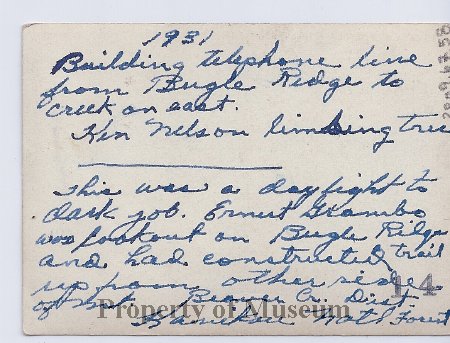 1931
Building telephone line
from Bugle Ridge to
creek on east.
Ken Nelson limbing tree
This was a daylight to
dark job. Ernest Grambo
was lookout on Bugle Ridge
and had constructed trail
up from other side
of mt. Beaver Cr. Dist
Kaniksu Natl Forest
14
Property of Museum